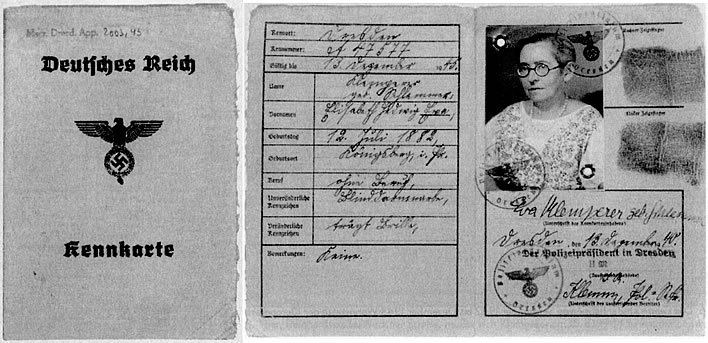 Mscr. Dresd. App. 2003, 45
Deutsches Reich
Kennkarte
Kennort: Dresden
Kennummer: A 47577
Gültig bis 13. Dezember 1945.
Name Klemperer
geb. Schlemmer,
Vornamen Elisabeth Hedwig Eva,
Geburtstag 12. Juli 1882,
Geburtsort Königsberg, i. Pr.
Beruf ohne Beruf,
Unveränderliche
Kennzeichen Blinddarmnarbe,
Veränderliche
Kennzeichen trägt Brille,
Bemerkungen: Keine.
Rechter Zeigefinger
Linker Zeigefinger
Dresden
Dresden
Eva Klemperer geb.
(Unterschrift des Kennkarteninhabers)
Dresden, den 13. Dezember 40.
Der Polizeipräsident in Dresden
Dresden
(Unterschrift des ausfertigenden Beamten)